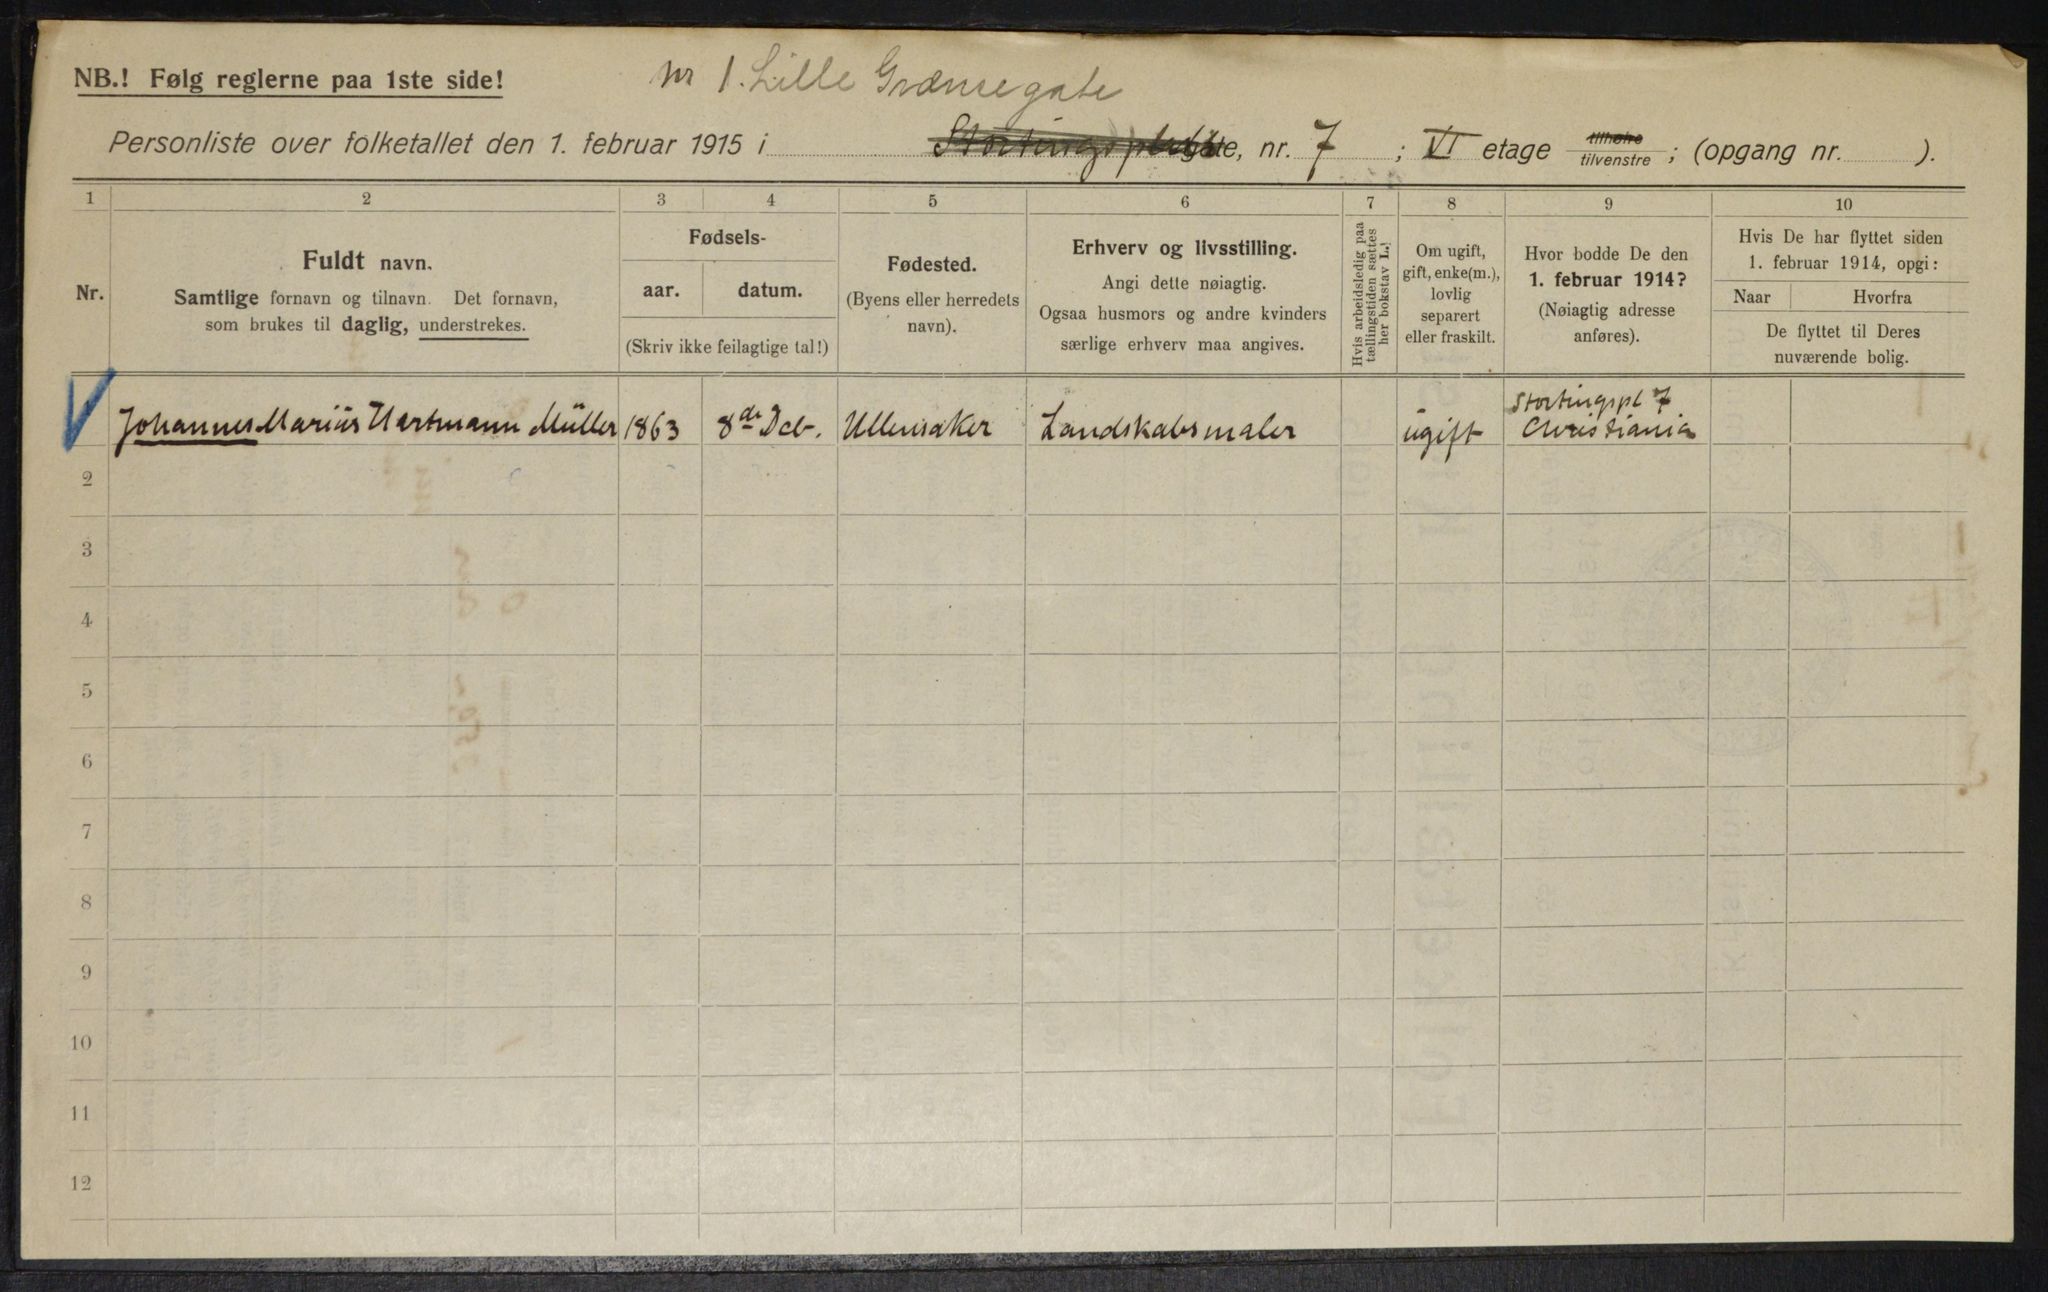 NB.! Følg reglerne paa 1ste side!
nr 1. Lille Grænsegate
Personliste over folketallet den 1. februar 1915 i Stortingsplads gate, nr. 7; VI etage tilhøire tilvenstre; (opgang nr. ).
1 2 3 4 5 6 7 8 9 10
Nr.
Fuldt navn.
Samtlige fornavn og tilnavn. Det fornavn,
som brukes til daglig, understrekes.
Fødsels-
aar. datum.
(Skriv ikke feilagtige tal!)
Fødested.
(Byens eller herredets
navn).
Erhverv og livsstilling.
Angi dette nøiagtig.
Ogsaa husmors og andre kvinders
særlige erhverv maa angives.
Hvis arbeidsledig paa
tællingstiden sættes
her bokstav L.!
Om ugift,
gift, enke(m.),
lovlig
separert
eller fraskilt.
Hvor bodde De den
1. februar 1914?
(Nøiagtig adresse
anføres).
Hvis De har flyttet siden
1. februar 1914, opgi:
Naar Hvorfra
De flyttet til Deres
nuværende bolig.
Johannes Marius Hartmann Müller 1863 8de Dcb. Ullensaker Landskabsmaler ugift Stortingspl 7
Christiania
2
3
4
5
6
7
8
9
10
11
12